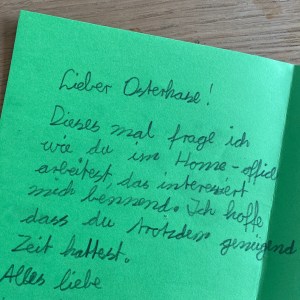 Lieber Osterhase!
Dieses mal frage ich
wie du im Home-offic
arbeitest, das interessiert
mich brennend. Ich hoffe
dass du trotzdem genügend
Zeit hattest.
Alles liebe